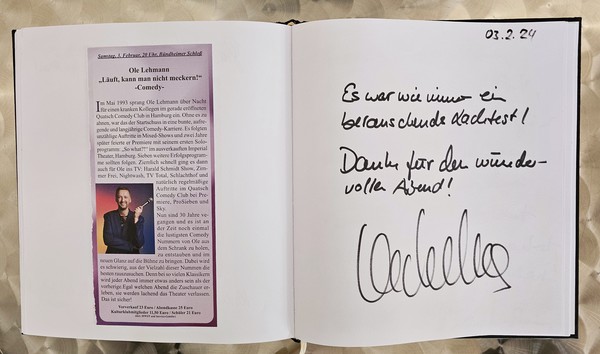 Samstag, 3. Februar, 20 Uhr, Bündheimer Schloß
Ole Lehmann
„Läuft, kann man nicht meckern!“
-Comedy-
Im Mai 1993 sprang Ole Lehmann über Nacht
für einen kranken Kollegen im gerade eröffneten
Quatsch Comedy Club in Hamburg ein. Ohne es zu
ahnen, war das der Startschuss in eine bunte, aufre-
gende und langjährige Comedy-Karriere. Es folgten
unzählige Auftritte in Mixed-Shows und zwei Jahre
später feierte er Premiere mit seinem ersten Solo-
programm: „So what?!“ im ausverkauften Imperial
Theater, Hamburg. Sieben weitere Erfolgsprogram-
me sollten folgen. Ziemlich schnell ging es dann
auch für Ole ins TV: Harald Schmidt Show, Zim-
mer Frei, Nightwash, TV Total, Schlachthof und
natürlich regelmäßige
Auftritte im Quatsch
Comedy Club bei Pre-
miere, ProSieben und
Sky.
Nun sind 30 Jahre ver-
gangen und es ist an
der Zeit noch einmal
die lustigsten Comedy
Nummern von Ole aus
dem Schrank zu holen,
zu entstauben und im
neuem Glanz auf die Bühne zu bringen. Dabei wird
es schwierig, aus der Vielzahl dieser Nummern die
besten rauszusuchen. Denn bei so vielen Klassikern
wird jeder Abend immer etwas anders sein als der
vorherige. Egal welchen Abend die Zuschauer er-
leben, sie werden lachend das Theater verlassen.
Das ist sicher!
Vorverkauf 23 Euro / Abendkasse 25 Euro
Kulturklubmitglieder 11,50 Euro / Schüler 21 Euro
03.2.24
Es war wie immer ein
berauschendes Lachfest!
Danke für den wunder-
vollen Abend!